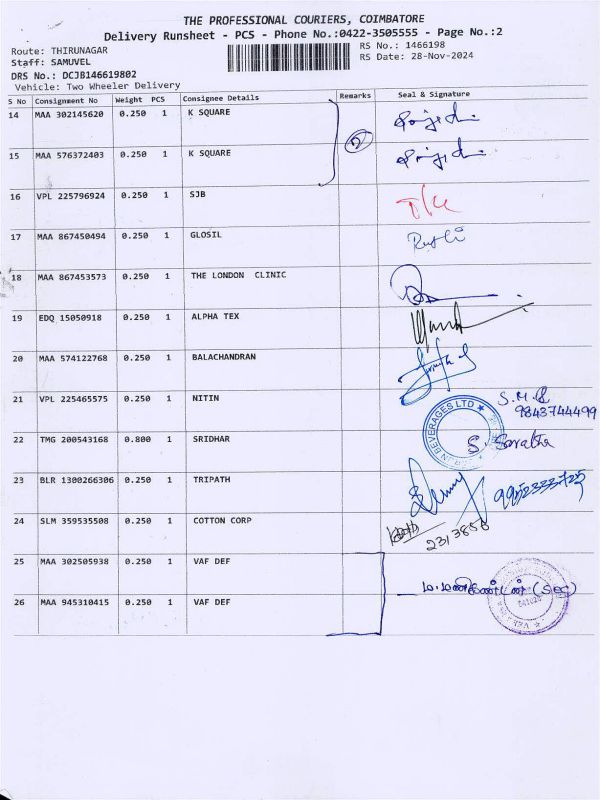 THE PROFESSIONAL COURIERS, COIMBATORE
Delivery Runsheet - PCS - Phone No.:0422-3505555 - Page No.:2
Route: THIRUNAGAR
RS No.: 1466198
Staff: SAMUVEL
RS Date: 28-Nov-2024
DRS No.: DCJB146619802
Vehicle: Two Wheeler Delivery
S No Consignment No Weight PCS Consignee Details Remarks Seal & Signature
14 MAA 302145620 0.250 1 K SQUARE
2
15 MAA 576372403 0.250 1 K SQUARE
16 VPL 225796924 0.250 1 SJB
17 MAA 867450494 0.250 1 GLOSIL
18 MAA 867453573 0.250 1 THE LONDON CLINIC
19 EDQ 15050918 0.250 1 ALPHA TEX
20 MAA 574122768 0.250 1 BALACHANDRAN
21 VPL 225465575 0.250 1 NITIN
9843744499
BEVERAGES LTD
22 TMG 200543168 0.800 1 SRIDHAR
23 BLR 1300266306 0.250 1 TRIPATH
24 SLM 359535508 0.250 1 COTTON CORP
2313858
25 MAA 302505938 0.250 1 VAF DEF
(Sec)
26 MAA 945310415 0.250 1 VAF DEF